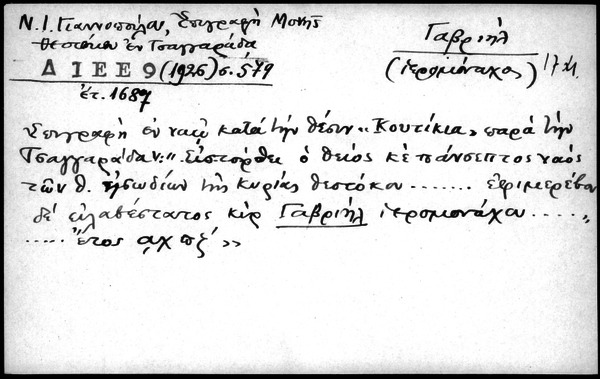 Ν. Ι. Γιαννοπούλου, Ἐπιγραφὴ Μονῆς
Θεοτόκου ἐν Τσαγγαράδᾳ
Δ Ι Ε Ε 9 (1926) σ. 579
ἔτ. 1687
Γαβριὴλ
(ἱερομόναχος)
Ἐπιγραφὴ ἐν ναῷ κατὰ τὴν θέσιν «Κουτίκια» παρὰ τὴν
Τσαγγαράδαν: "Εἱστόρθει ὁ θεῖος κὲ πάνσεπτος ναὸς
τῶν θ. εἰσωδίων τῆς κυρίας θεοτόκου ....... ἐφιμερέβον
δέ εὐλαβέστατος κὺρ Γαβριὴλ ἱερομονάχου .....,
..... Ἔτος αχπζ΄»